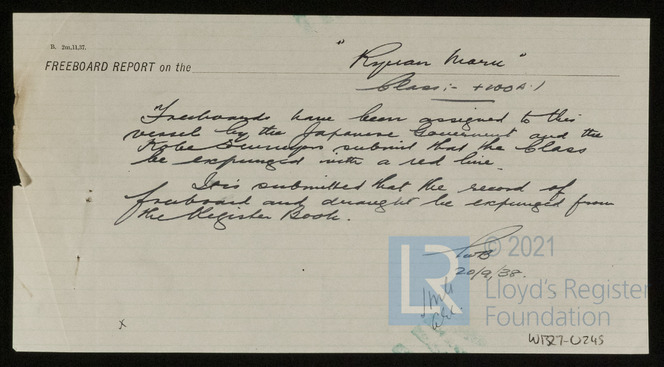 D. 2m,11,37.
FREEBOARD REPORT on the "Ryuan Maru"
Class:- +100A.1
Freeboards have been assigned to this
vessel by the Japanese Government and the
Kobe Surveyors submit that the Class
be expunged with a red line.
It is submitted that the record of
freeboard and draught be expunged from
the Register Book.
20/9/38.
x
LR
© 2021
Lloyd's Register
Foundation
W727-0245